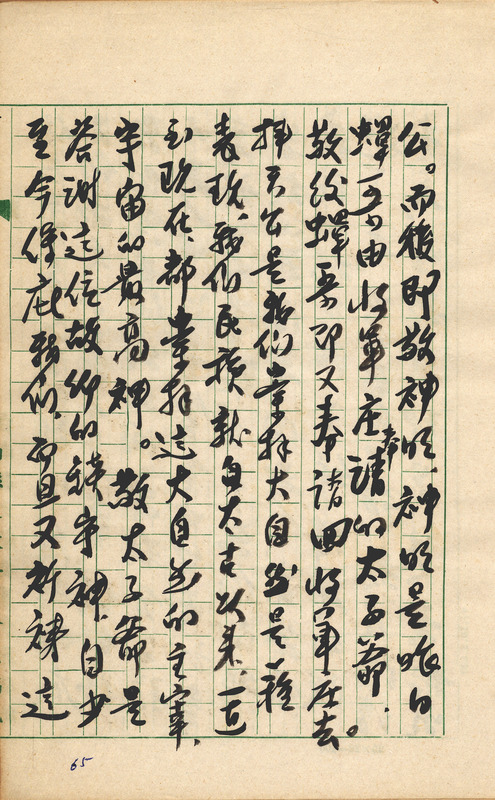 公。而後即敬神明,神明是昨日
蟬哥由將軍庄奉請的太子爺,
敬後蟬哥即又奉請回將軍庄去。
拜天公是我們崇拜大自然是一種
表現,我們民族就自太古以來一直
到現在,都崇拜這大自然的主宰,
宇宙的最高神。敬太子爺是
答謝這位故鄉的鎮守神,自少
至今保庇我們,而且又祈禱這
65